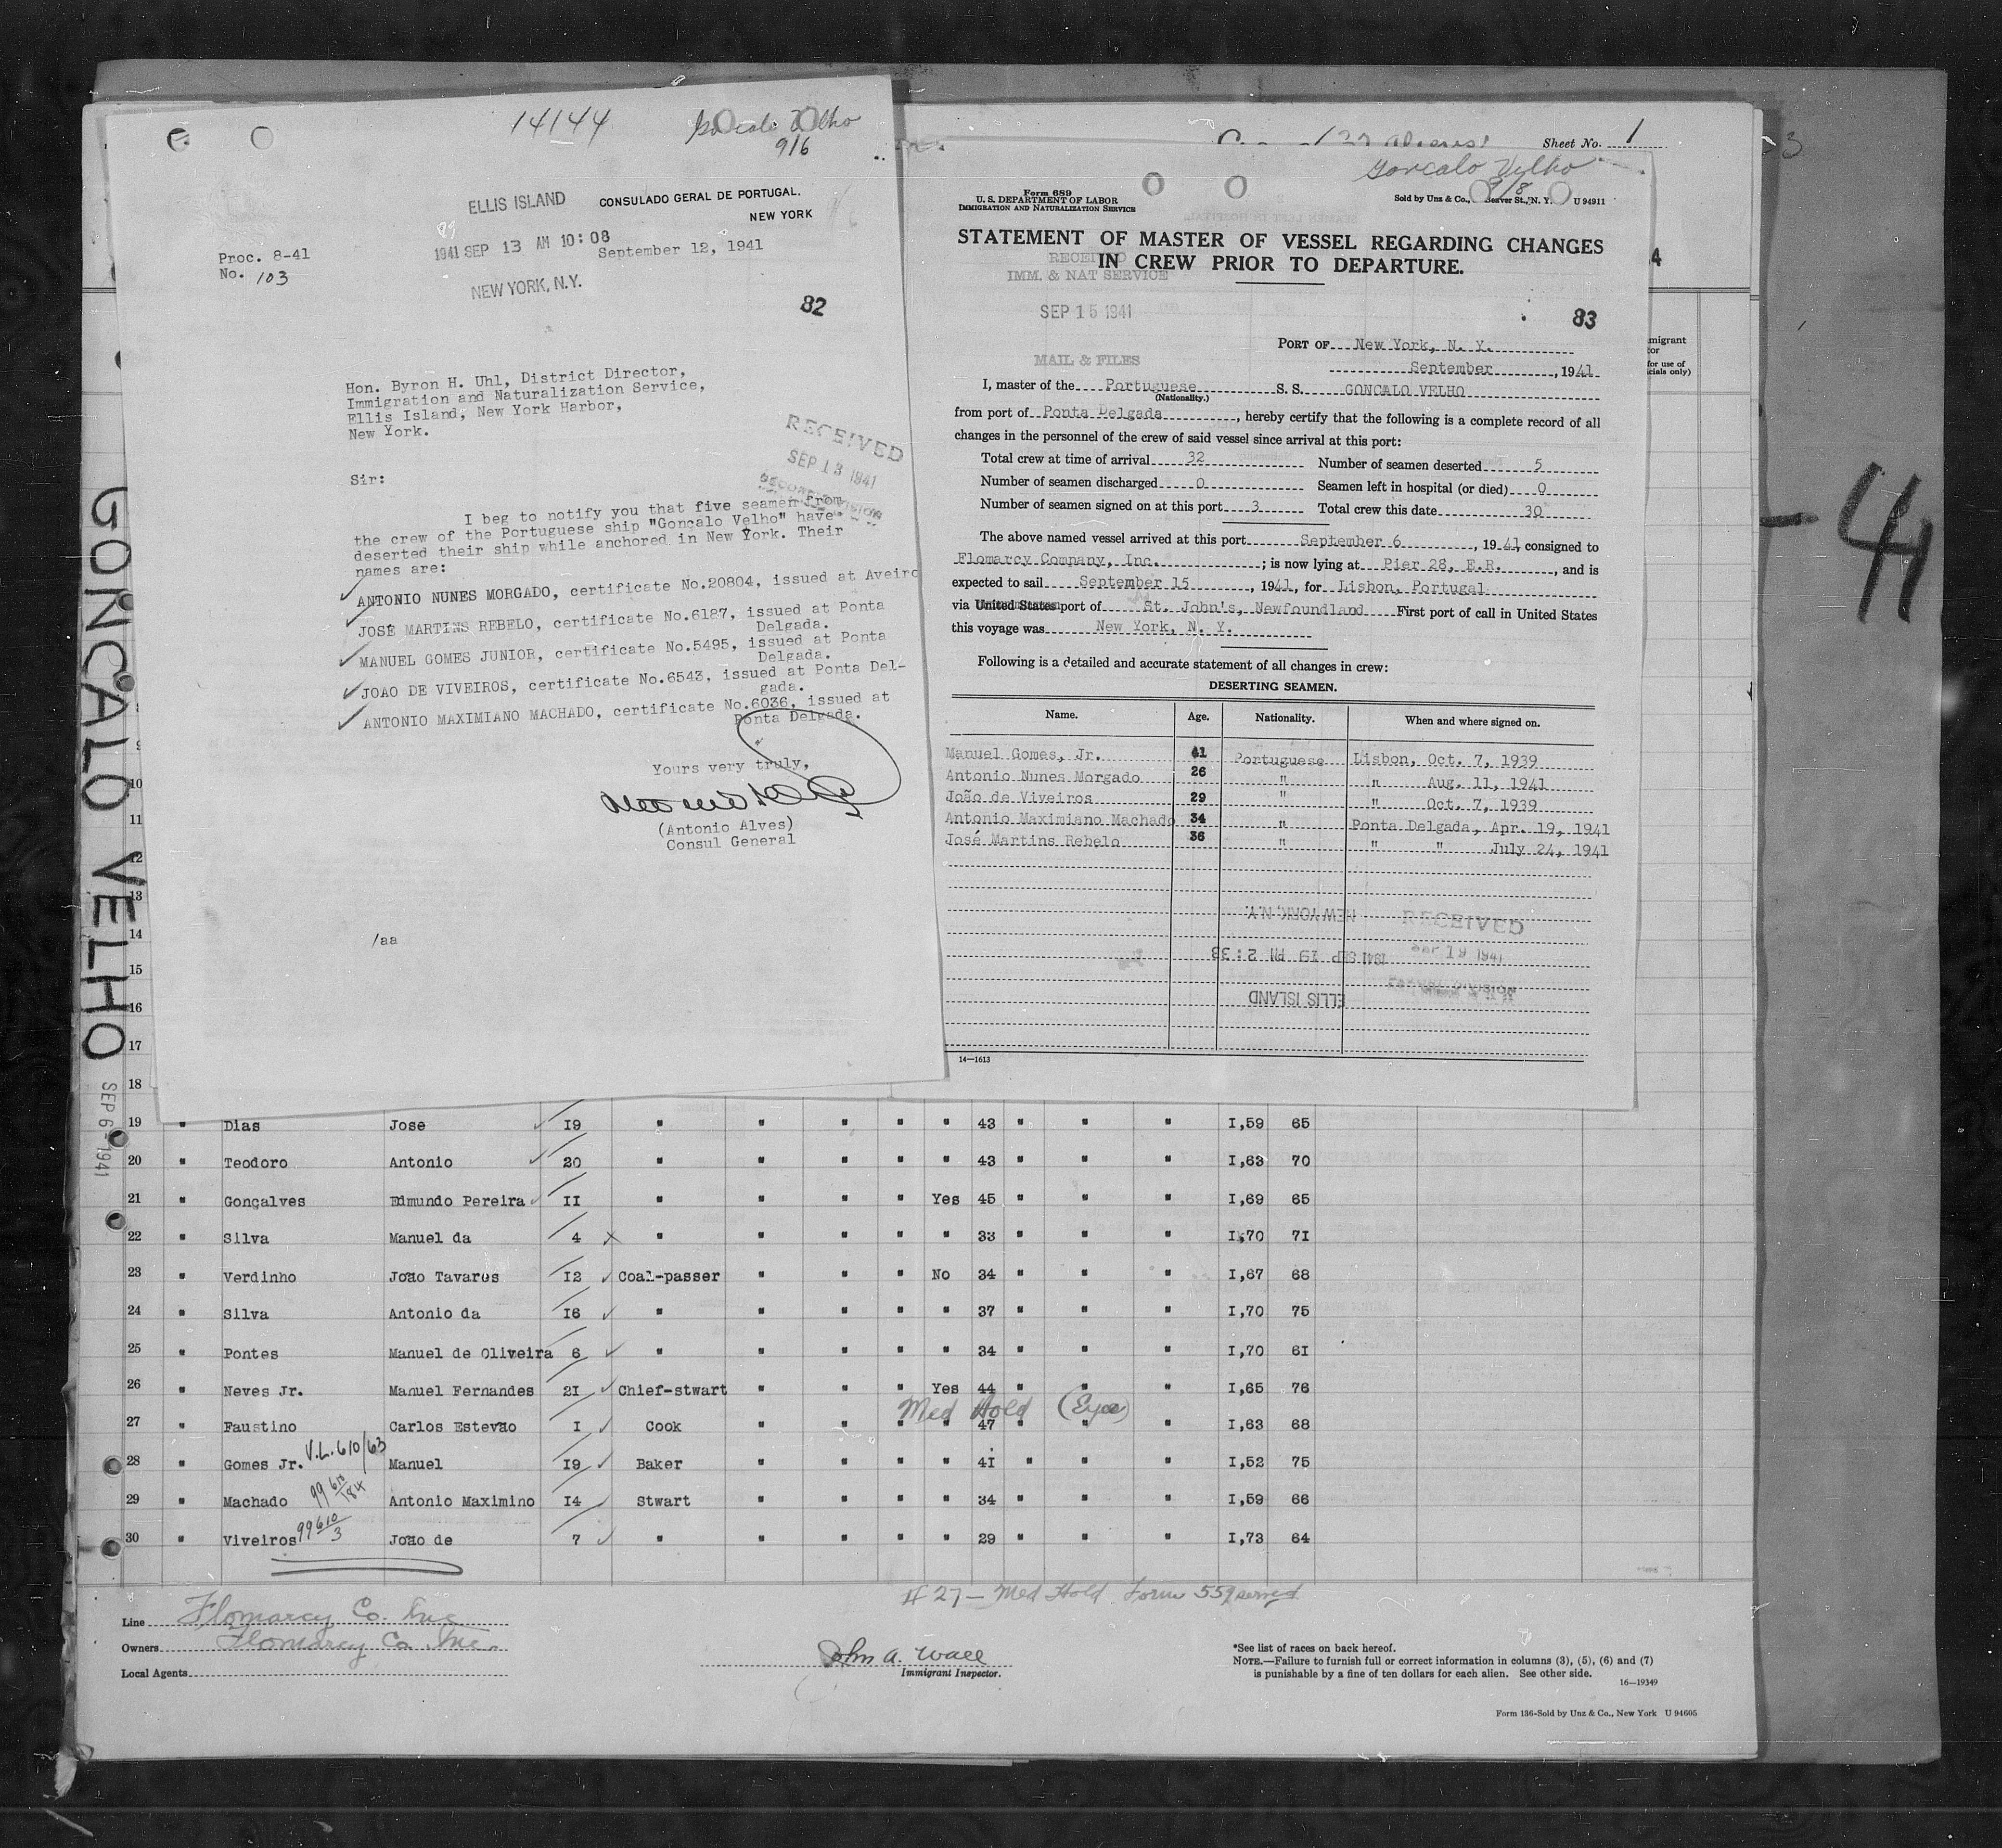 14144
9/6
ELLIS ISLAND
CONSULADO GERAL DE PORTUGAL.
NEW YORK
1941 SEP 13 AM 10:08
September 12, 1941
Proc. 8-41
No. 103
NEW YORK, N.Y.
82
Hon. Byron H. Uhl, District Director,
Immigration and Naturalization Service,
Ellis Island, New York Harbor,
New York.
RECEIVED
SEP 13 1941
Sir:
I beg to notify you that five seamen from
the crew of the Portuguese ship "Gonçalo Velho" have
deserted their ship while anchored in New York. Their
names are:
ANTONIO NUNES MORGADO, certificate No.20804, issued at Aveiro
JOSÉ MARTINS REBELO, certificate No.6187, issued at Ponta
Delgada.
MANUEL GOMES JUNIOR, certificate No.5495, issued at Ponta
Delgada.
JOAO DE VIVEIROS, certificate No.6543, issued at Ponta Del-
gada.
ANTONIO MAXIMIANO MACHADO, certificate No.6036, issued at
Ponta Delgada.
Yours very truly,
(Antonio Alves)
Consul General
/aa
Sheet No. 1
Goncalo Velho
Form 689
U. S. DEPARTMENT OF LABOR
IMMIGRATION AND NATURALIZATION SERVICE
Sold by Unz & Co., Beaver St., N. Y. U 94911
STATEMENT OF MASTER OF VESSEL REGARDING CHANGES
IN CREW PRIOR TO DEPARTURE.
RECEIVED
IMM. & NAT SERVICE
SEP 15 1941
MAIL & FILES
83
PORT OF New York, N. Y.
September, 1941
I, master of the Portuguese S.S. GONCALO VELHO
(Nationality.)
from port of Ponta Delgada, hereby certify that the following is a complete record of all
changes in the personnel of the crew of said vessel since arrival at this port:
Total crew at time of arrival 32 Number of seamen deserted 5
Number of seamen discharged 0 Seamen left in hospital (or died) 0
Number of seamen signed on at this port 3 Total crew this date 30
The above named vessel arrived at this port September 6, 1941, consigned to
Flomarcy Company, Inc.; is now lying at Pier 28, E.R., and is
expected to sail September 15, 1941, for Lisbon, Portugal
via United States port of St. John's, Newfoundland First port of call in United States
this voyage was New York, N. Y.
Following is a detailed and accurate statement of all changes in crew:
DESERTING SEAMEN.
Name. Age. Nationality. When and where signed on.
Manuel Gomes, Jr. 41 Portuguese Lisbon, Oct. 7, 1939
Antonio Nunes Morgado 26 " " Aug. 11, 1941
João de Viveiros 29 " " Oct. 7, 1939
Antonio Maximiano Machado 34 " Ponta Delgada, Apr. 19, 1941
José Martins Rebelo 36 " " " July 24, 1941
NEW YORK, N.Y.
RECEIVED
1941 SEP 19 PM 2:33
19 1941
ELLIS ISLAND
14—1613
4
migrant
for use of
cials only)
-41
GONCALO VELHO
SEP 6 - 1941
9
10
11
12
13
14
15
16
17
18
19 " Dias Jose 19 " " " " " 43 " " " 1,59 65
20 " Teodoro Antonio 20 " " " " " 43 " " " 1,63 70
21 " Gonçalves Edmundo Pereira 11 " " " " Yes 45 " " " 1,69 65
22 " Silva Manuel da 4 " " " " " 33 " " " 1,70 71
23 " Verdinho Joao Tavares 12 Coal-passer " " " No 34 " " " 1,67 68
24 " Silva Antonio da 16 " " " " " 37 " " " 1,70 75
25 " Pontes Manuel de Oliveira 6 " " " " " 34 " " " 1,70 61
26 " Neves Jr. Manuel Fernandes 21 Chief-stwart " " " Yes 44 " " " 1,65 76
Med Hold (Eye)
27 " Faustino Carlos Estevão 1 Cook " " " " 47 " " " 1,63 68
28 " Gomes Jr. V.L. 610/63 Manuel 19 Baker " " " " 41 " " " 1,52 75
29 " Machado 99610/184 Antonio Maximino 14 Stwart " " " " 34 " " " 1,59 66
30 " Viveiros 99610/3 João de 7 " " " " " 29 " " " 1,73 64
#27 — Med Hold Form 559 served
Line Flomarcy Co. Inc
Owners Flomarcy Co. Inc.
Local Agents
John A. Wall
Immigrant Inspector.
*See list of races on back hereof.
NOTE.—Failure to furnish full or correct information in columns (3), (5), (6) and (7)
is punishable by a fine of ten dollars for each alien. See other side.
16—19349
Form 136-Sold by Unz & Co., New York U 94605